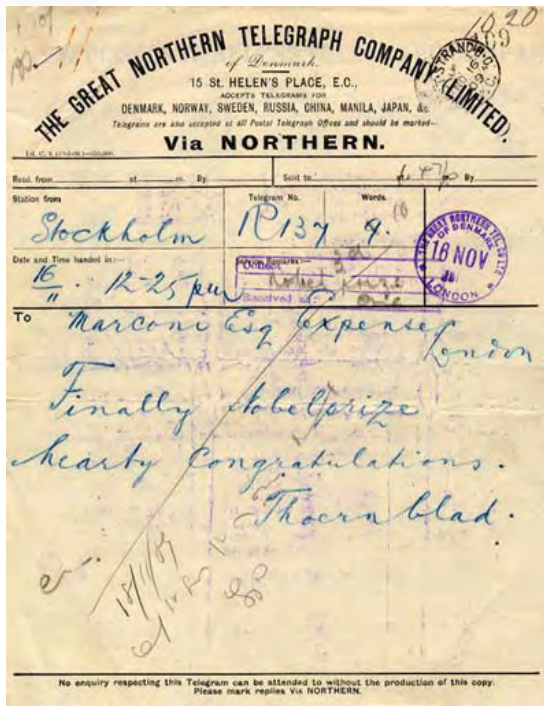 10 20
109
THE GREAT NORTHERN TELEGRAPH COMPANY (LIMITED).
of Denmark.
15 St. HELEN'S PLACE, E.C.,
ACCEPTS TELEGRAMS FOR
DENMARK, NORWAY, SWEDEN, RUSSIA, CHINA, MANILA, JAPAN, &c.
Telegrams are also accepted at all Postal Telegraph Offices and should be marked—
Via NORTHERN.
Recd. from at m. By Sent to at m By
Station from Telegram No. Words.
Stockholm R137 9.
16
THE GREAT NORTHERN TEL. CO. LTD.
OF DENMARK
16 NOV
LONDON
Date and Time handed in:—
16/11. 12-25 pm
Received
To Marconi Esq Expense London
Finally Nobelprize
hearty Congratulations.
Thoernblad.
No enquiry respecting this Telegram can be attended to without the production of this copy.
Please mark replies VIA NORTHERN.